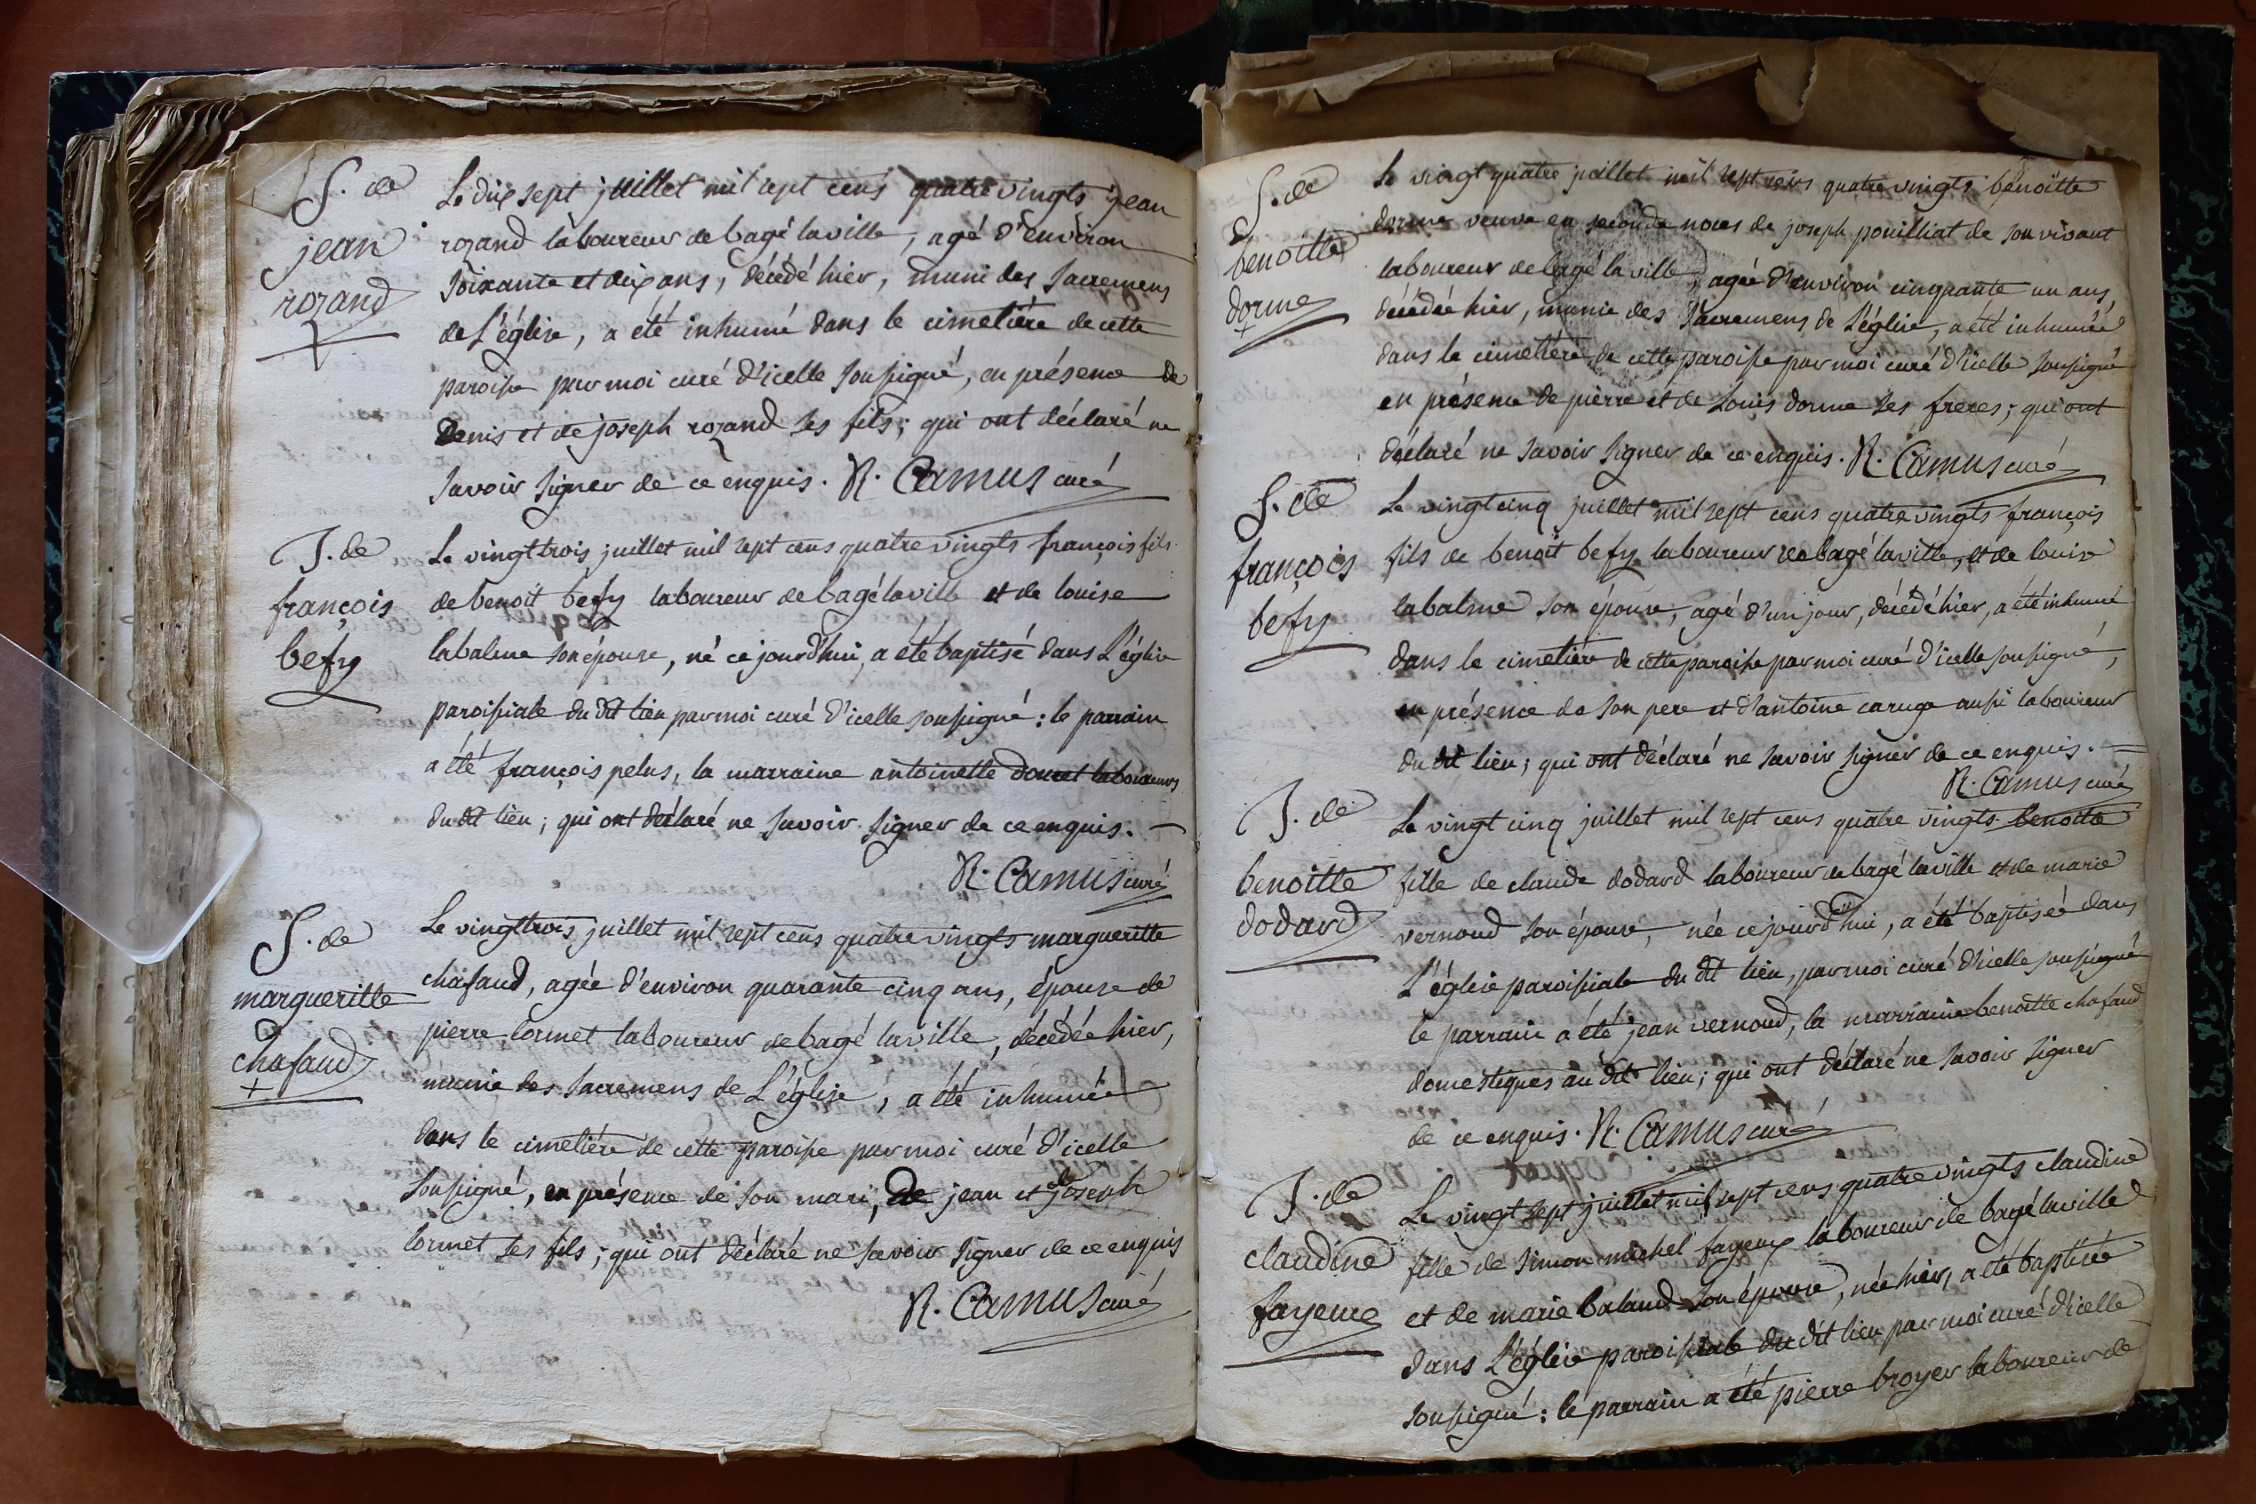 S. de
jean
rozand
Le dix sept juillet mil sept cens quatre vingts jean
rozand laboureur de bagé laville, agé d'environ
soixante et dix ans, décédé hier, muni des sacremens
de L'église, a été inhumé dans le cimetiére de cette
paroisse par moi curé d'icelle soussigné, en présence de
denis et de joseph rozand ses fils; qui ont déclaré ne
savoir signer de ce enquis. R. Camus curé
J. de
françois
befy
Le vingt trois juillet mil sept cens quatre vingts françois fils
de benoit befy laboureur de bagé laville et de louise
labalme son épouse, né ce jourd'hui, a été baptisé dans L'église
paroissiale du dit lieu par moi curé d'icelle soussigné: le parrain
a été françois pelus, la marraine antoinette douret laboureurs
du dit lieu; qui ont déclaré ne savoir signer de ce enquis.
R. Camus curé
S. de
margueritte
chafaud
+
Le vingt trois juillet mil sept cens quatre vingts margueritte
chafaud, agée d'environ quarante cinq ans, épouse de
pierre cornet laboureur de bagé laville, décédée hier,
munie des sacremens de L'église, a été inhumée
dans le cimetiére de cette paroisse par moi curé d'icelle
soussigné, en présence de son mari, de jean et de joseph
cornet ses fils; qui ont déclaré ne savoir signer de ce enquis
R. Camus curé
S. de
benoitte
dorme
+
Le vingt quatre juillet mil sept cens quatre vingts benoitte
dorme veuve en seconde noces de joseph pouilliat de son vivant
laboureur de bagé la ville, agée d'environ cinquante un ans,
décédée hier, munie des sacremens de L'église, a été inhumée
dans le cimetiére de cette paroisse par moi curé d'icelle soussigné
en présence de pierre et de Louis dorme ses freres; qui ont
déclaré ne savoir signer de ce enquis. R. Camus curé
S. de
françois
befy
Le vingt cinq juillet mil sept cens quatre vingts françois
fils de benoit befy laboureur de bagé laville, et de louise
labalme son épouse, agé d'un jour, décédé hier, a été inhumé
dans le cimetiére de cette paroisse par moi curé d'icelle soussigné,
en présence de son pere et d'antoine caruge aussi laboureur
du dit lieu; qui ont déclaré ne savoir signer de ce enquis.
R. Camus curé
J. de
benoitte
dodard
Le vingt cinq juillet mil sept cens quatre vingts benoitte
fille de claude dodard laboureur de bagé laville et de marie
vernoud son épouse, née ce jourd'hui, a été baptisée dans
L'église paroissiale du dit lieu, par moi curé d'icelle soussigné
le parrain a été jean vernoud, la marraine benoitte chafaud
domestiques au dit lieu; qui ont déclaré ne savoir signer
de ce enquis. R. Camus curé
J. de
claudine
fayeux
Le vingt sept juillet mil sept cens quatre vingts claudine
fille de simon michel fayeux laboureur de bagé laville
et de marie baland son épouse, née hier, a été baptisée
dans L'église paroissiale du dit lieu par moi curé d'icelle
soussigné: le parrain a été pierre broyer laboureur de